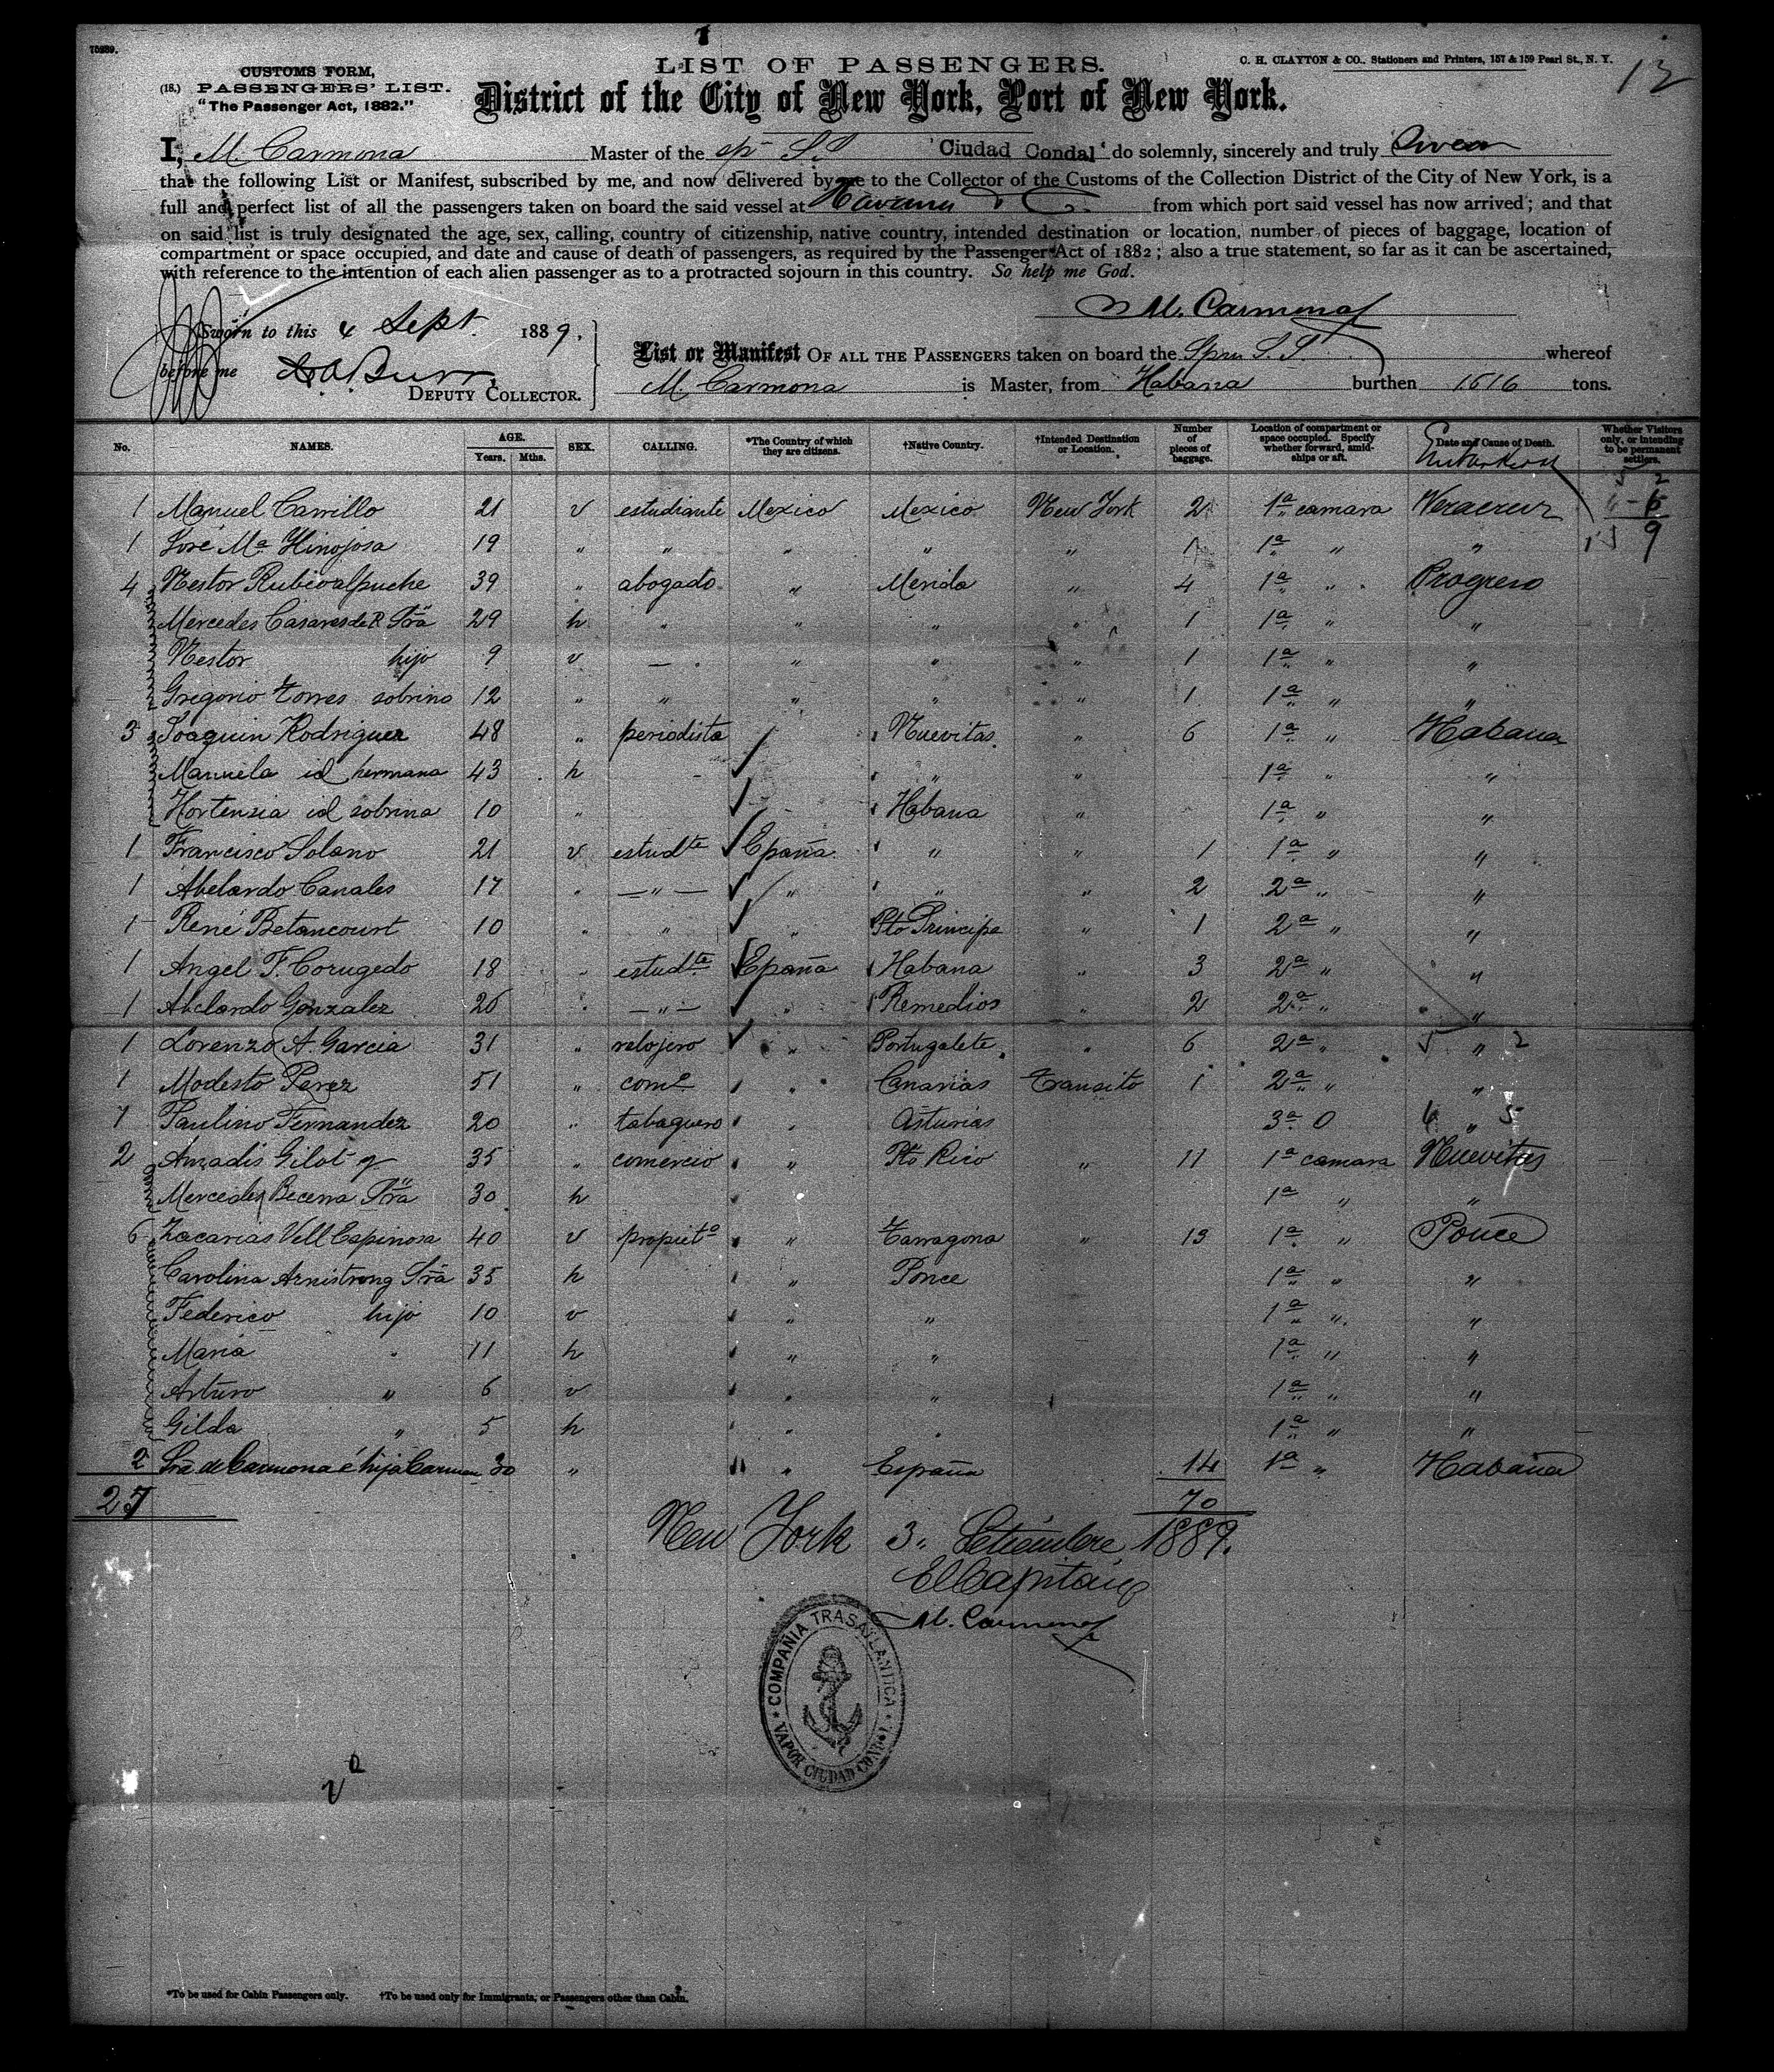 70289.
1
LIST OF PASSENGERS.
C. H. CLAYTON & CO., Stationers and Printers, 157 & 159 Pearl St., N. Y.
CUSTOMS FORM,
(18.) PASSENGERS' LIST.
"The Passenger Act, 1882."
District of the City of New York, Port of New York.
I, M. Carmona Master of the sp S.S 'Ciudad Condal' do solemnly, sincerely and truly Swear
that the following List or Manifest, subscribed by me, and now delivered by me to the Collector of the Customs of the Collection District of the City of New York, is a
full and perfect list of all the passengers taken on board the said vessel at Havana from which port said vessel has now arrived; and that
on said list is truly designated the age, sex, calling, country of citizenship, native country, intended destination or location, number of pieces of baggage, location of
compartment or space occupied, and date and cause of death of passengers, as required by the Passenger Act of 1882; also a true statement, so far as it can be ascertained,
with reference to the intention of each alien passenger as to a protracted sojourn in this country. So help me God.
M. Carmona
Sworn to this 4 Sept. 1889.
before me
DEPUTY COLLECTOR.
List or Manifest OF ALL THE PASSENGERS taken on board the Span S.S. whereof
M. Carmona is Master, from Habana burthen 1616 tons.
No. NAMES. AGE. Years. Mths. SEX. CALLING. *The Country of which they are citizens. †Native Country. †Intended Destination or Location. Number of pieces of baggage. Location of compartment or space occupied. Specify whether forward, amidships or aft. Date and Cause of Death. Whether Visitors only, or intending to be permanent settlers.
1 Manuel Carrillo 21 v estudiante Mexico Mexico New York 2 1a camara Veracruz
1 José Ma Hinojosa 19 " " " " " 1 1a " "
4 Nestor Rubio Alpuche 39 " abogado " Merida " 4 1a " Progreso
Mercedes Casares de R Sra 29 h " " " " 1 1a " "
Nestor hijo 9 v — " " " 1 1a " "
Gregorio Torres sobrino 12 " " " " " 1 1a " "
3 Joaquin Rodriguez 48 " periodista Nuevitas " 6 1a " Habana
Manuela id hermana 43 h " " 1a " "
Hortensia id sobrina 10 " Habana " 1a " "
1 Francisco Solano 21 v estudte Epaña " " 1 1a " "
1 Abelardo Canales 17 " —"— " " " 2 2a " "
1 René Betancourt 10 " " " Pto Principe " 1 2a " "
1 Angel F. Corugedo 18 " estudte Epaña Habana " 3 2a " "
1 Abelardo Gonzalez 26 " —"— " Remedios " 2 2a " "
1 Lorenzo A. Garcia 31 " relojero " Portugalete " 6 2a " "
1 Modesto Perez 51 " como " Canarias Transito 1 2a " "
1 Paulino Fernandez 20 " tabaquero " Asturias 3a 0 "
2 Amadis Gilot y 35 " comercio " Pto Rico " 11 1a camara Nuevitas
Mercedes Becerra Sra 30 h " 1a " "
6 Zacarias Vell Espinosa 40 v propieto " Tarragona " 13 1a " Ponce
Carolina Armstrong Sra 35 h " Ponce 1a " "
Federico hijo 10 v " " 1a " "
Maria " 11 h " " 1a " "
Arturo " 6 v " " 1a " "
Gilda " 5 h " " 1a " "
2 Sra de Carmona é hija Carmen 30 " " España 14 1a " Habana
27 70
New York 3 Setiembre 1889.
El Capitan
M. Carmona
COMPAÑIA TRASATLANTICA
VAPOR CIUDAD CONDAL
*To be used for Cabin Passengers only. †To be used only for Immigrants, or Passengers other than Cabin.